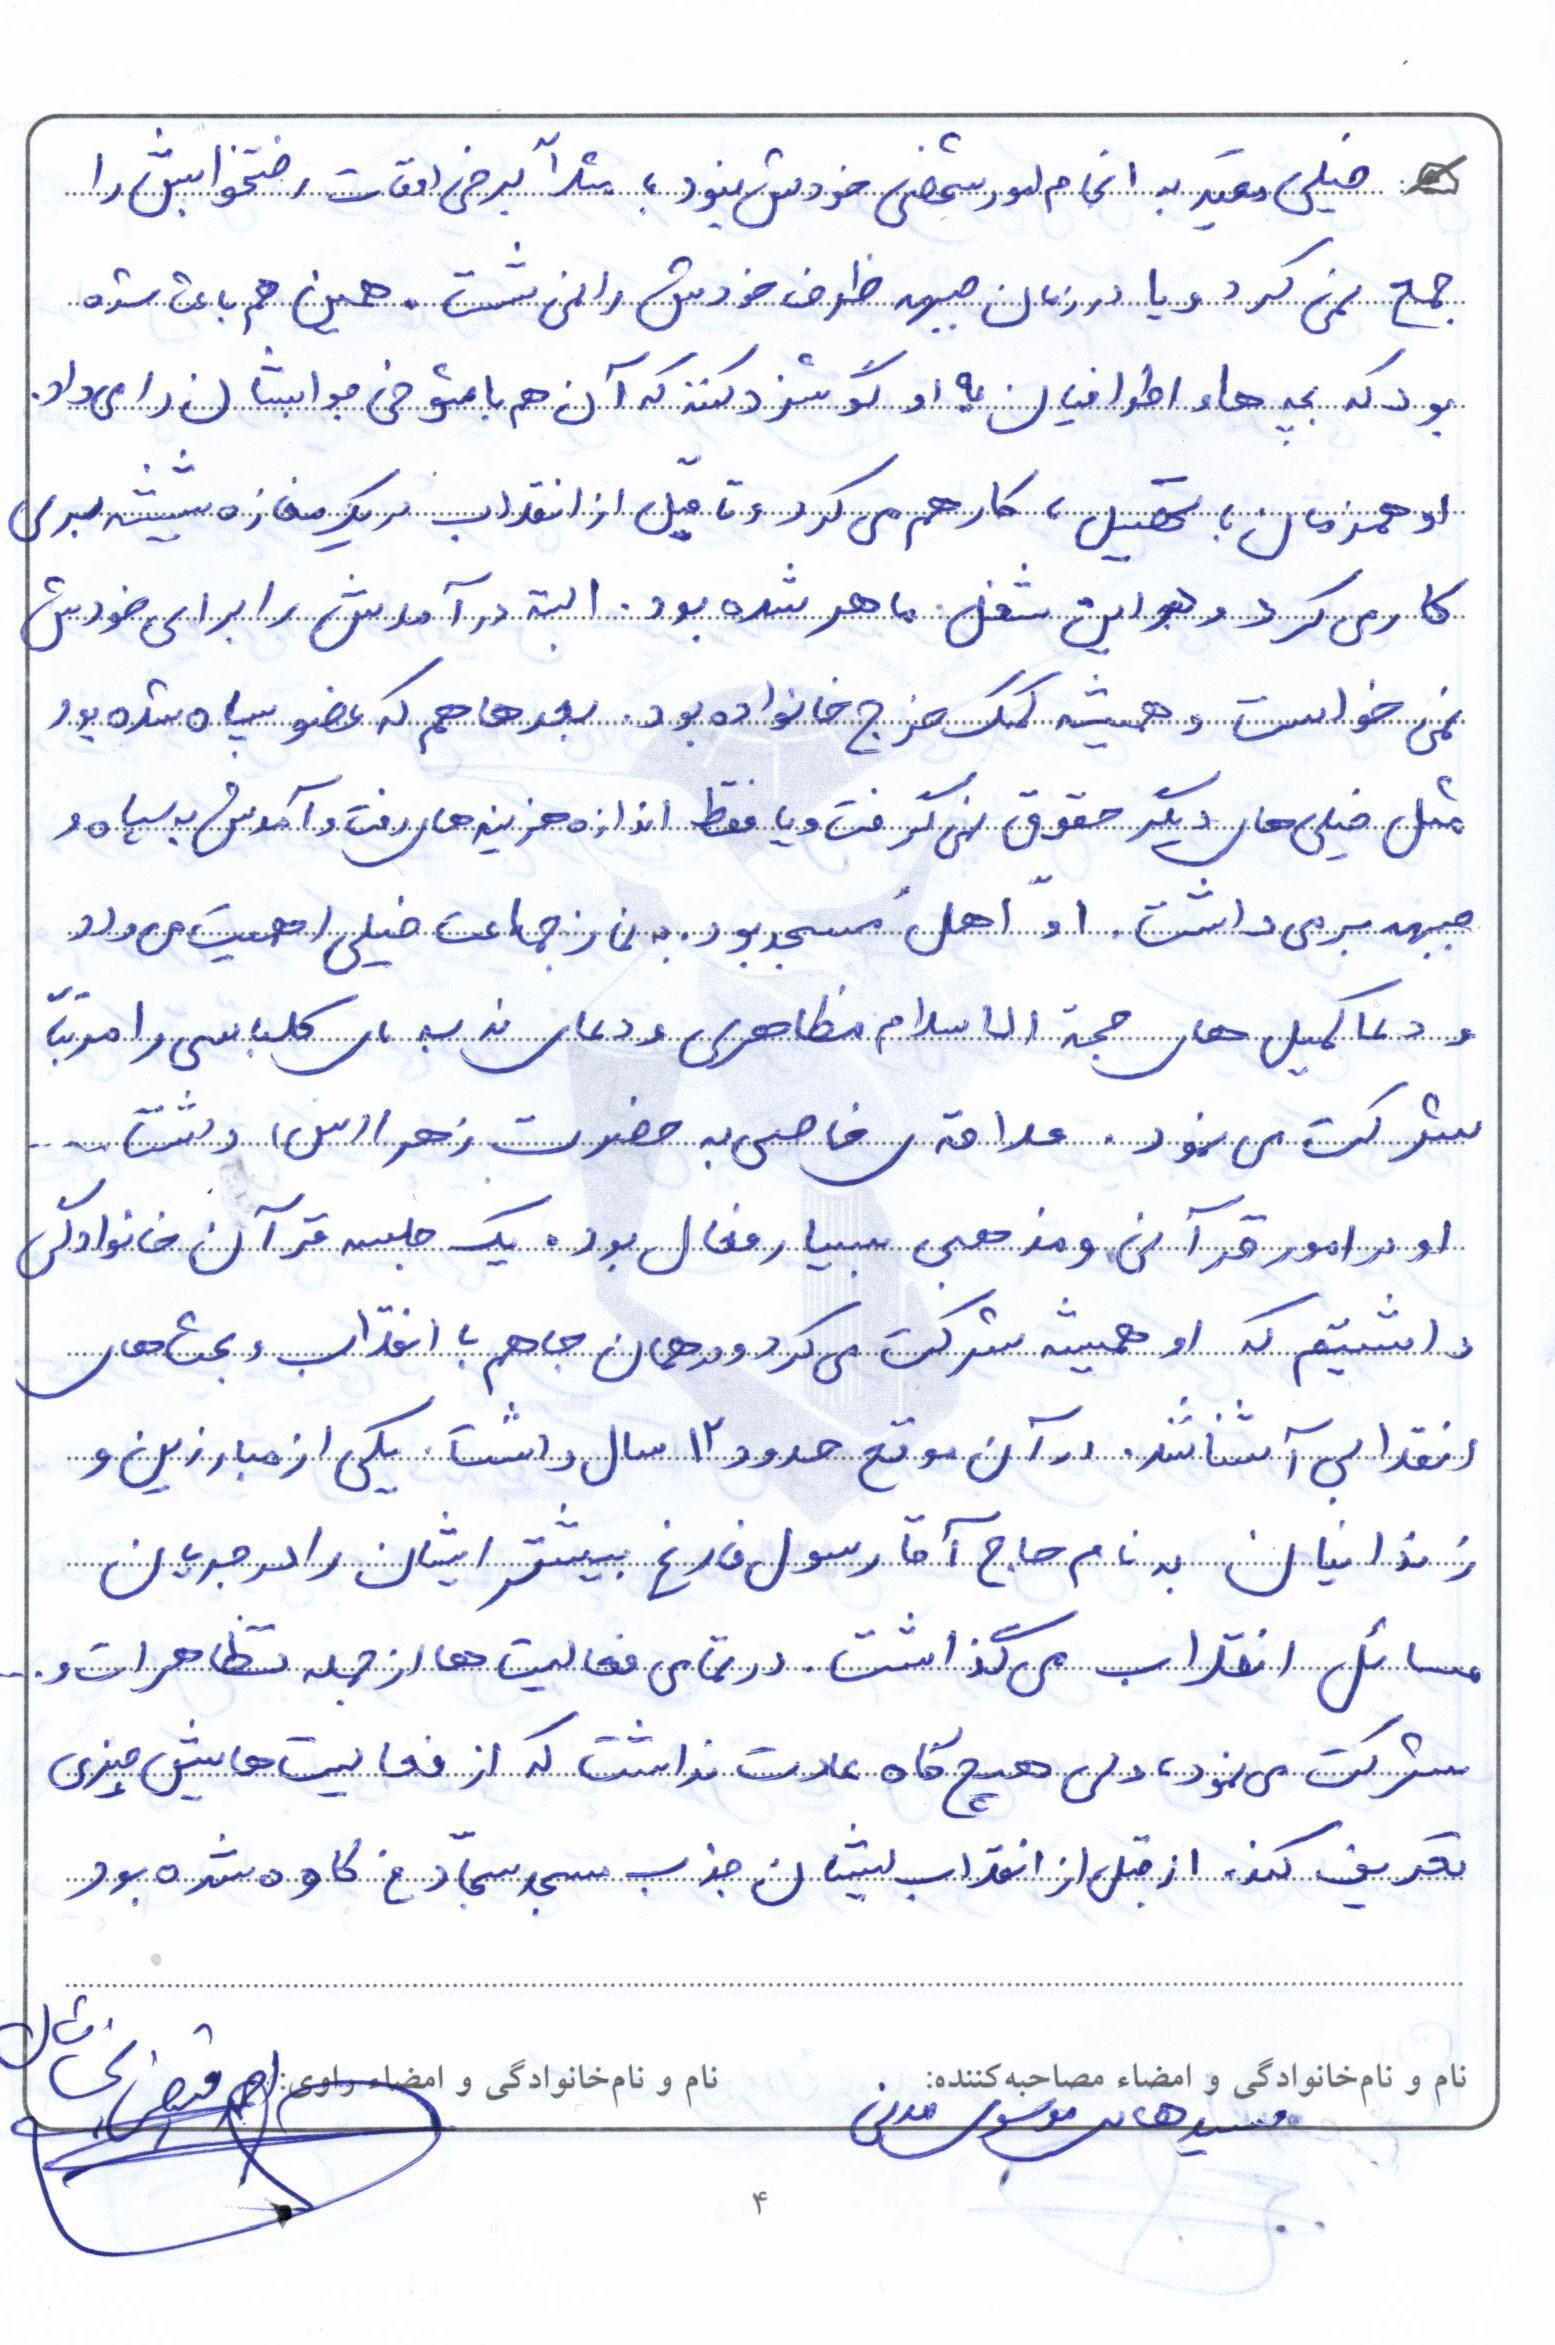 خیلی مقیّد به انجام امور شخصی خودش نبود، مثلاً برخی اوقات رختخوابش را
جمع نمی کرد و یا در زمان جبهه ظرف خودش را نمی شست. همین هم باعث شده
بود که بچه ها و اطرافیان به او گوشزد کنند که آن هم با شوخی جوابشان را می داد.
او همزمان با تحصیل، کار هم می کرد و تا قبل از انقلاب در یک مغازه شیشه بری
کار می کرد و در این شغل ماهر شده بود. البته درآمدش را برای خودش
نمی خواست و همیشه کمک خرج خانواده بود. بعدها هم که عضو سپاه شده بود
مثل خیلی های دیگر حقوق نمی گرفت و یا فقط اندازه هزینه های رفت و آمدش به سپاه و
جبهه برمی داشت. او اهل مسجد بود. به نماز جماعت خیلی اهمیت می داد
و دعا کمیل های حجة الاسلام مظاهری و دعای ندبه ی کلباسی را مرتباً
شرکت می نمود. علاقه ی خاصی به حضرت زهرا (س) داشت ...
او در امور قرآنی و مذهبی بسیار فعال بود. یک جلسه قرآن خانوادگی
داشتیم که او همیشه شرکت می کرد و در همان جا هم با انقلاب و بحث های
انقلابی آشنا شد. در آن موقع حدود ۱۲ سال داشت. یکی از مبارزین و
زندانیان به نام حاج آقا رسول فارغ بیشتر ایشان را در جریان
مسائل انقلاب می گذاشت. در تمامی فعالیت ها از جمله تظاهرات و ...
شرکت می نمود، ولی هیچ گاه عادت نداشت که از فعالیت هایش چیزی
تعریف کند. از قبل از انقلاب ایشان جذب مسجد سجّاد ع کاوه شده بود
نام و نام‌خانوادگی و امضاء مصاحبه‌کننده:
نام و نام‌خانوادگی و امضاء راوی:
موسوی مدنی
۴